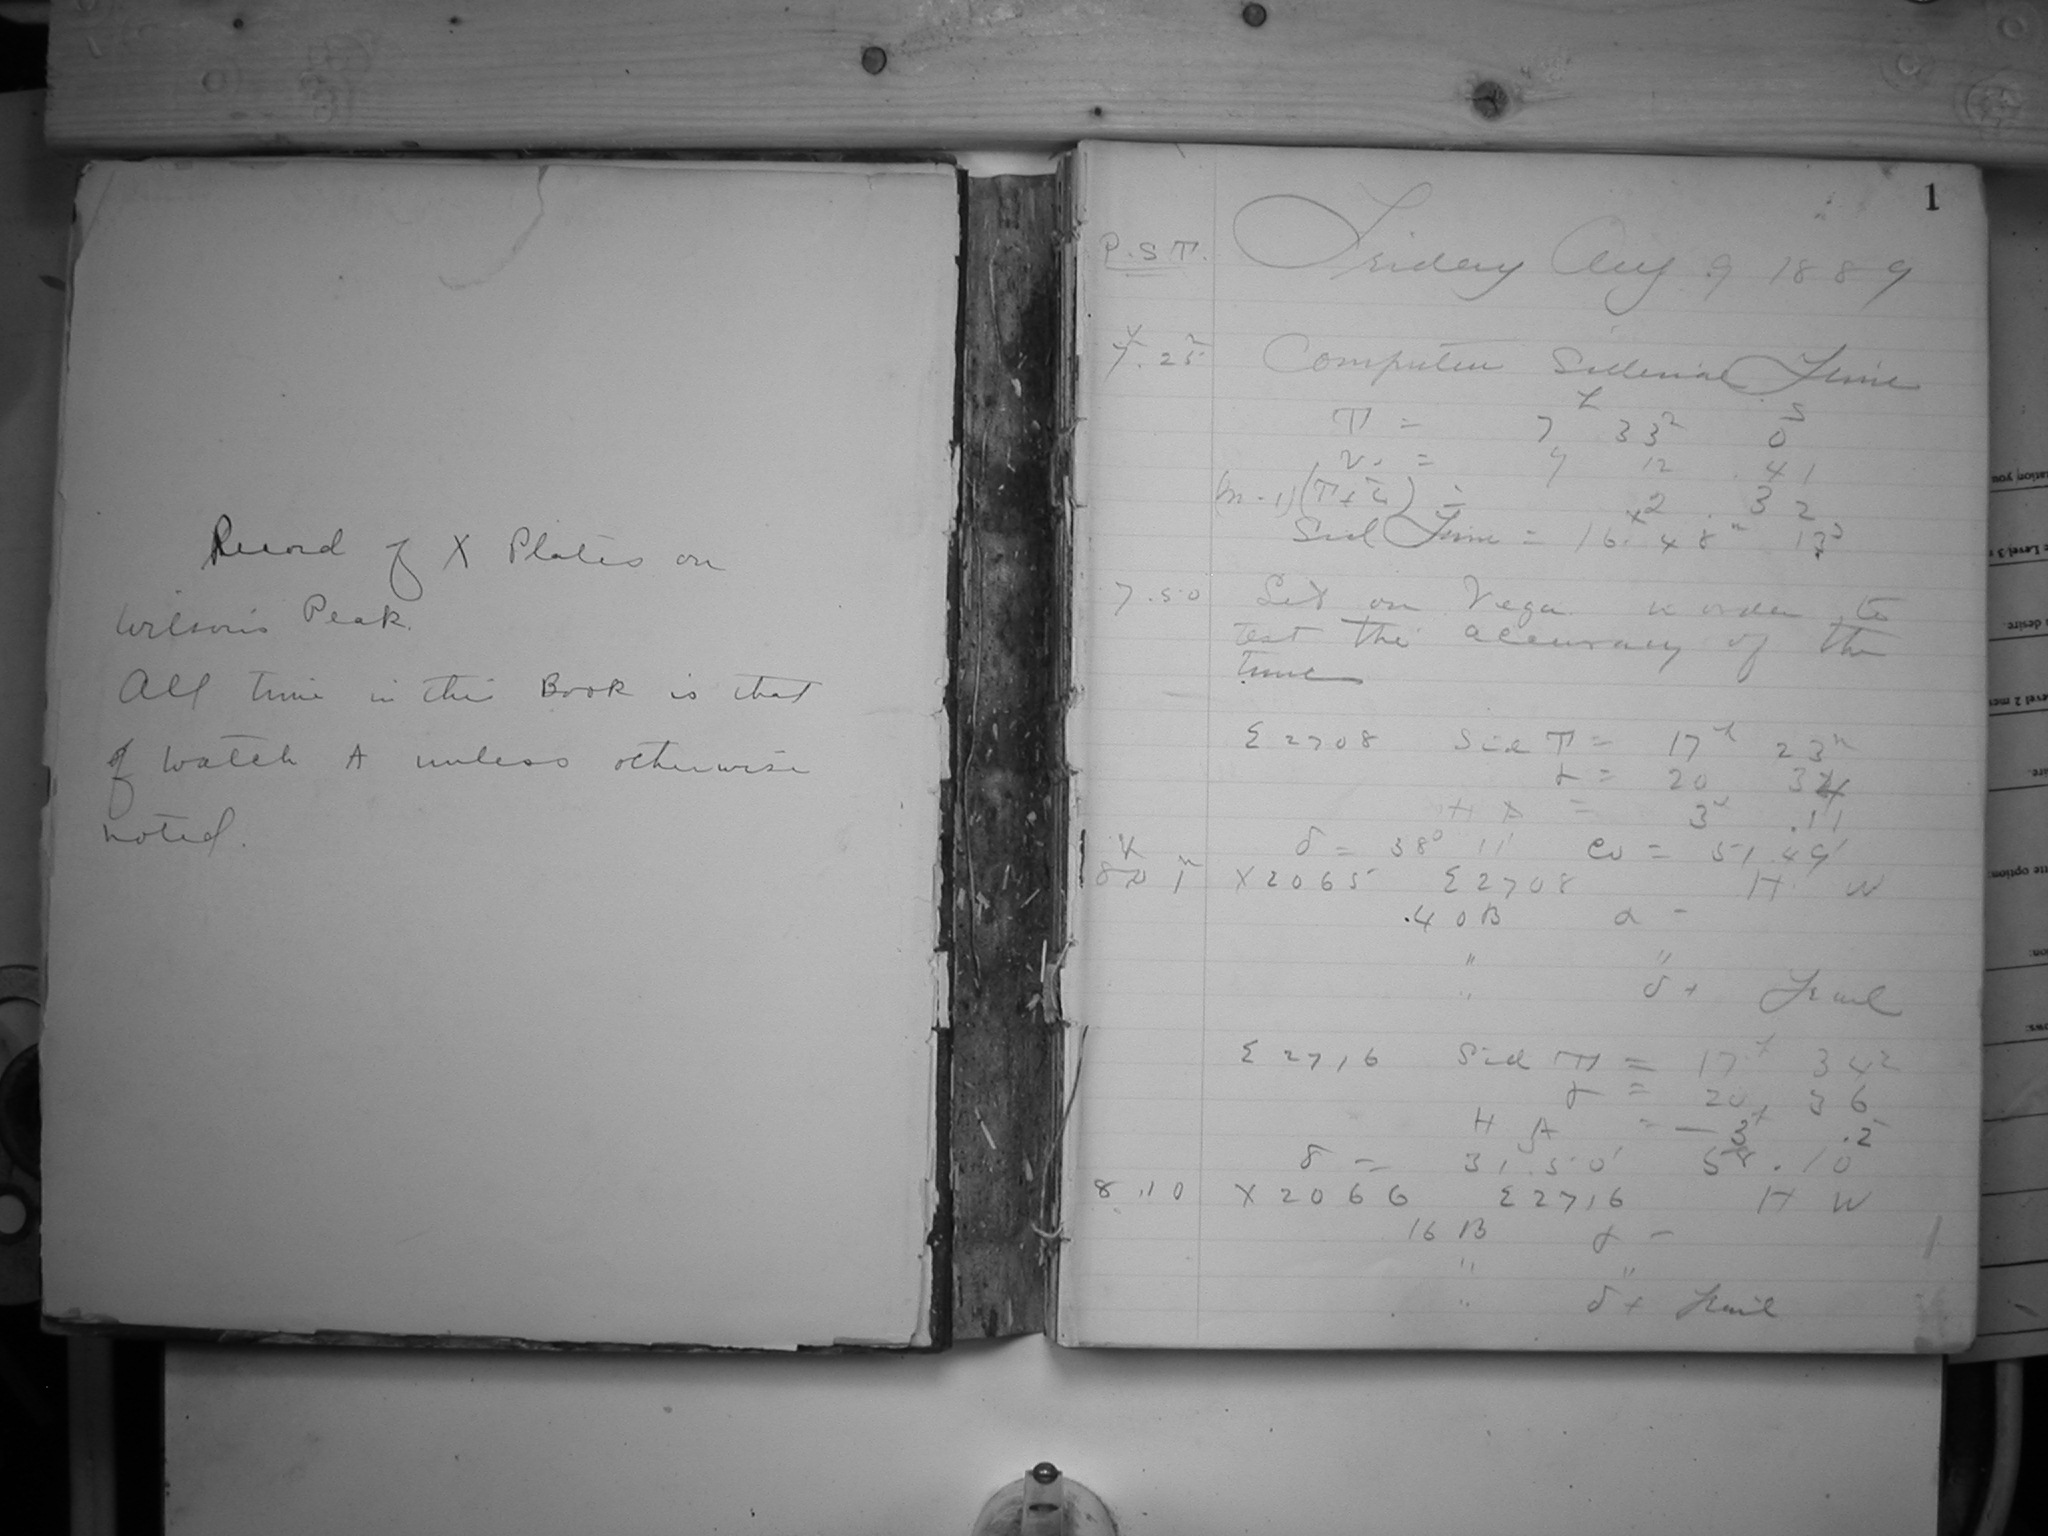 Record of X Plates on
Wilson's Peak.
All time in this Book is that
of Watch A unless otherwise
noted.
1
P.S.T. Friday Aug 9 1889
7.25 Computed Sidereal Time
T = 7h 33m 0s
V. = 9 12 41
(m-1) = 2 32
Sid Time = 16h 48m 13s
7.50 Set on Vega in order to
test the accuracy of the
time
Σ 2708 Sid T = 17h 23m
α = 20 34
H A = 3h .11
δ = 38° 11' Co = 51.49'
8h 1m X 2065 Σ 2708 H W
.40 B α -
" "
" δ + Trail
Σ 2716 Sid T = 17h 34m
α = 20 36
H A = - 3h .2
δ = 31.50' 58.10
8.10 X 2066 Σ 2716 H W
16 B α -
" "
" δ + Trail